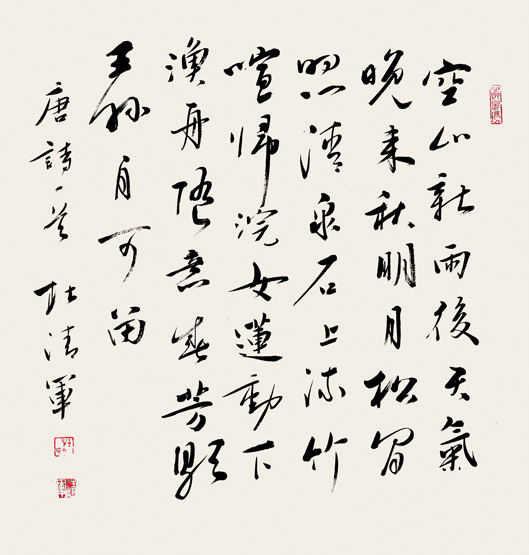 空山新雨後天氣
晚来秋明月松間
照清泉石上流竹
喧歸浣女蓮動下
漁舟随意春芳歇
王孫自可留
唐詩一首 杜清軍